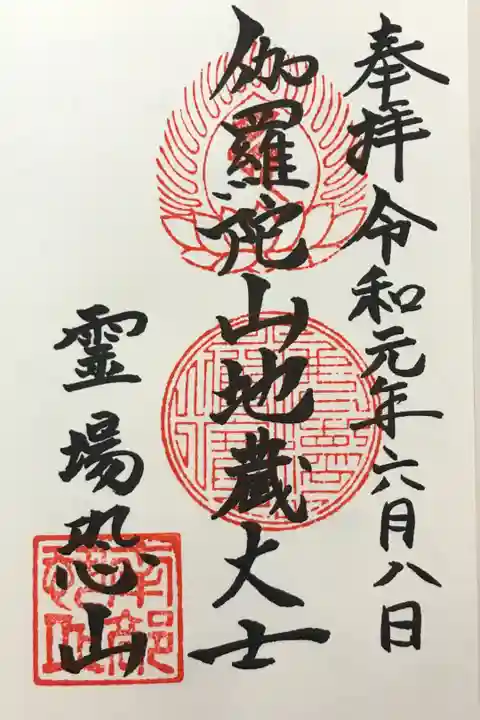 奉拝 令和元年六月八日
伽羅陀山地蔵大士
霊場恐山